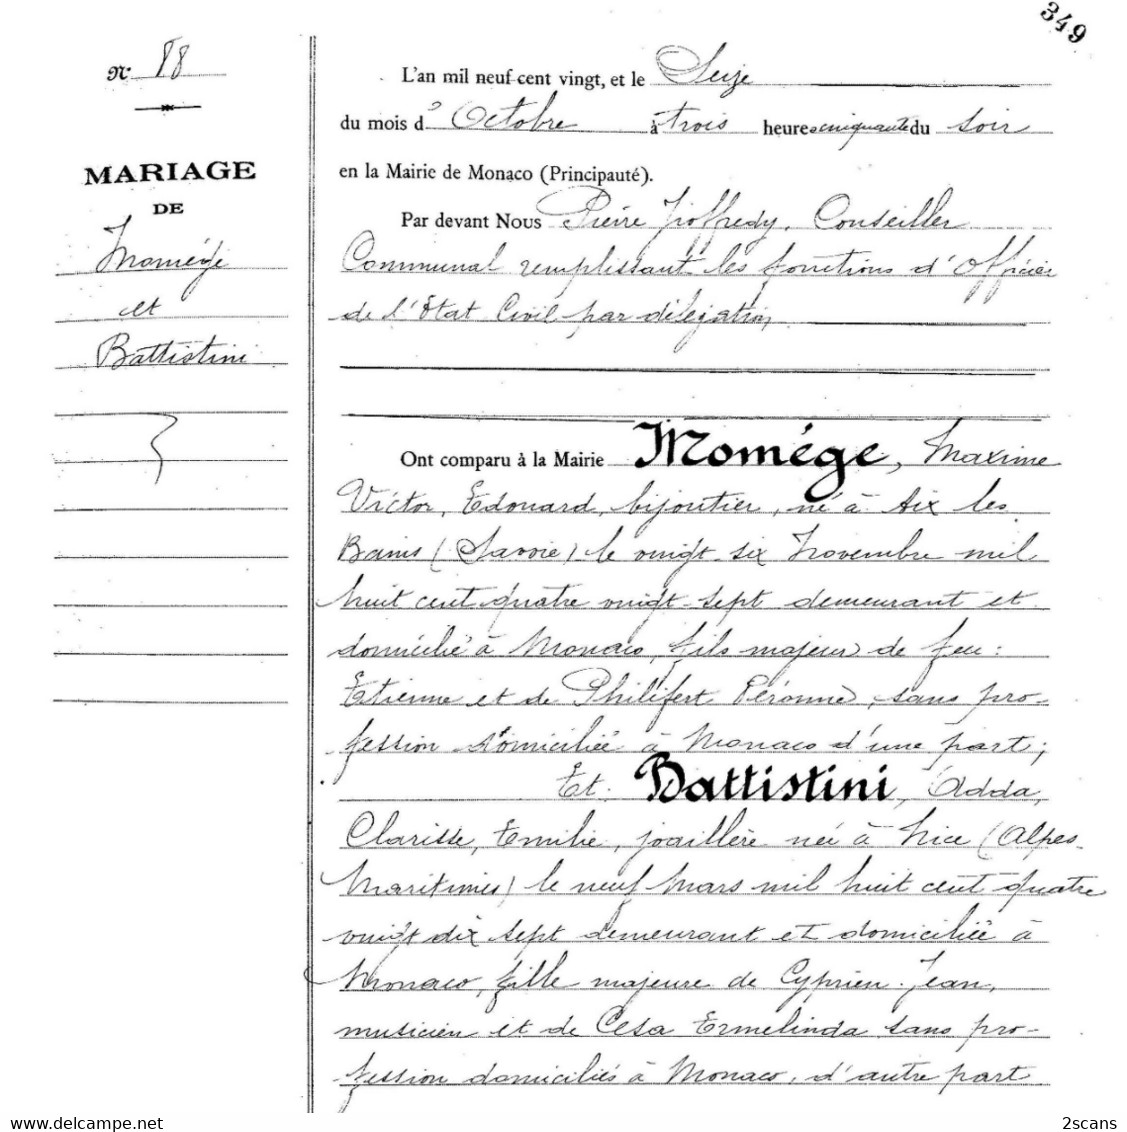 349
N° 88
MARIAGE
DE
Momége
et
Battistini
L'an mil neuf cent vingt, et le Seize
du mois d'Octobre à trois heures cinquante du soir
en la Mairie de Monaco (Principauté).
Par devant Nous Pierre Gioffredy, Conseiller
Communal remplissant les fonctions d'Officier
de l'Etat Civil par délégation
Ont comparu à la Mairie Momége, Maxime
Victor, Edouard, bijoutier, né à Aix les
Bains (Savoie) le vingt six Novembre mil
huit cent quatre vingt sept demeurant et
domicilié à Monaco, fils majeur de feu :
Etienne et de Philifert Péronne, sans pro-
fession domiciliée à Monaco d'une part;
Et Battistini, Adda,
Clarisse, Emilie, joaillère née à Nice (Alpes
Maritimes) le neuf Mars mil huit cent quatre
vingt dix sept demeurant et domiciliée à
Monaco, fille majeure de Cyprien Jean,
musicien et de Cesa Ermelinda sans pro-
fession domiciliés à Monaco, d'autre part
www.delcampe.net
2scans